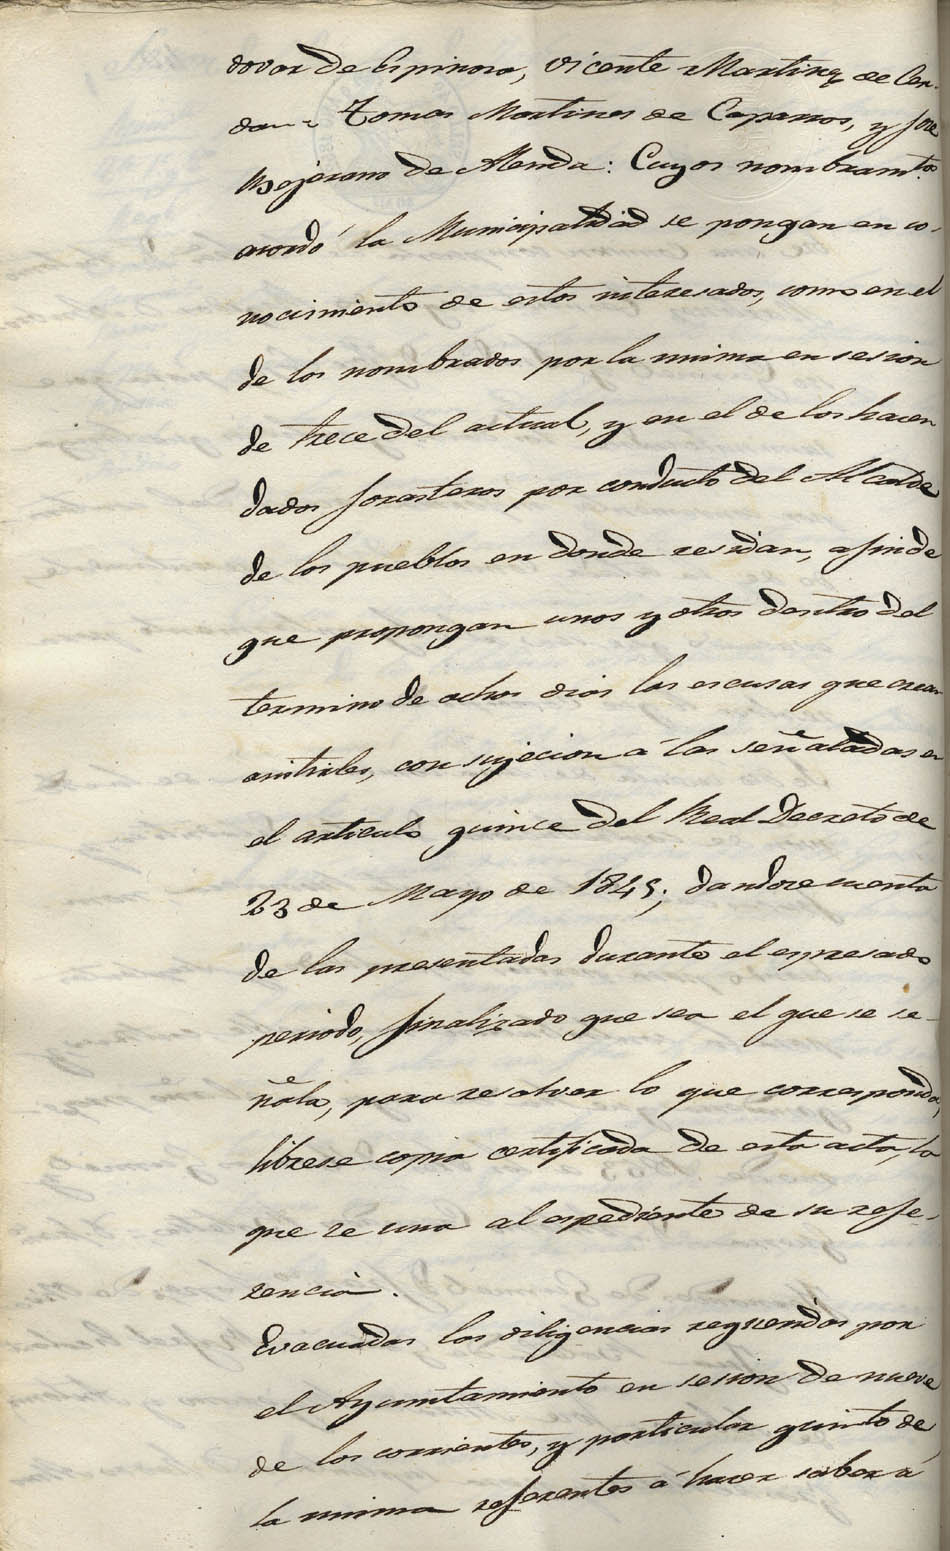 dovar de Espinosa, Vicente Martinez de Cer-
dan = Tomas Martines de Caparros, y Jose
Bejerano de Alenda: Cuyos nombramtos
acordó la Municipalidad se pongan en co-
nocimiento de estos interesados, como en el
de los nombrados por la misma en sesion
de trece del actual, y en el de los hacen
dados forasteros por conducto del Alcalde
de los pueblos en donde residan, a fin de
que propongan unos y otros dentro del
termino de ochos dias las escusas que crean
asistirles, con sujecion á las señaladas en
el articulo quince del Real Decreto de
23 de Mayo de 1845; dandose cuenta
de las presentadas durante el espresado
periodo, finalizado que sea el que se se-
ñala, para resolver lo que corresponda,
librese copia certificada de esta acta, la
que se una al espediente de su refe-
rencia.
Evacuadas las diligencias requeridas por
el Ayuntamiento en sesion de nueve
de los corrientes, y particular quinto de
la misma referentes á hacer saber a